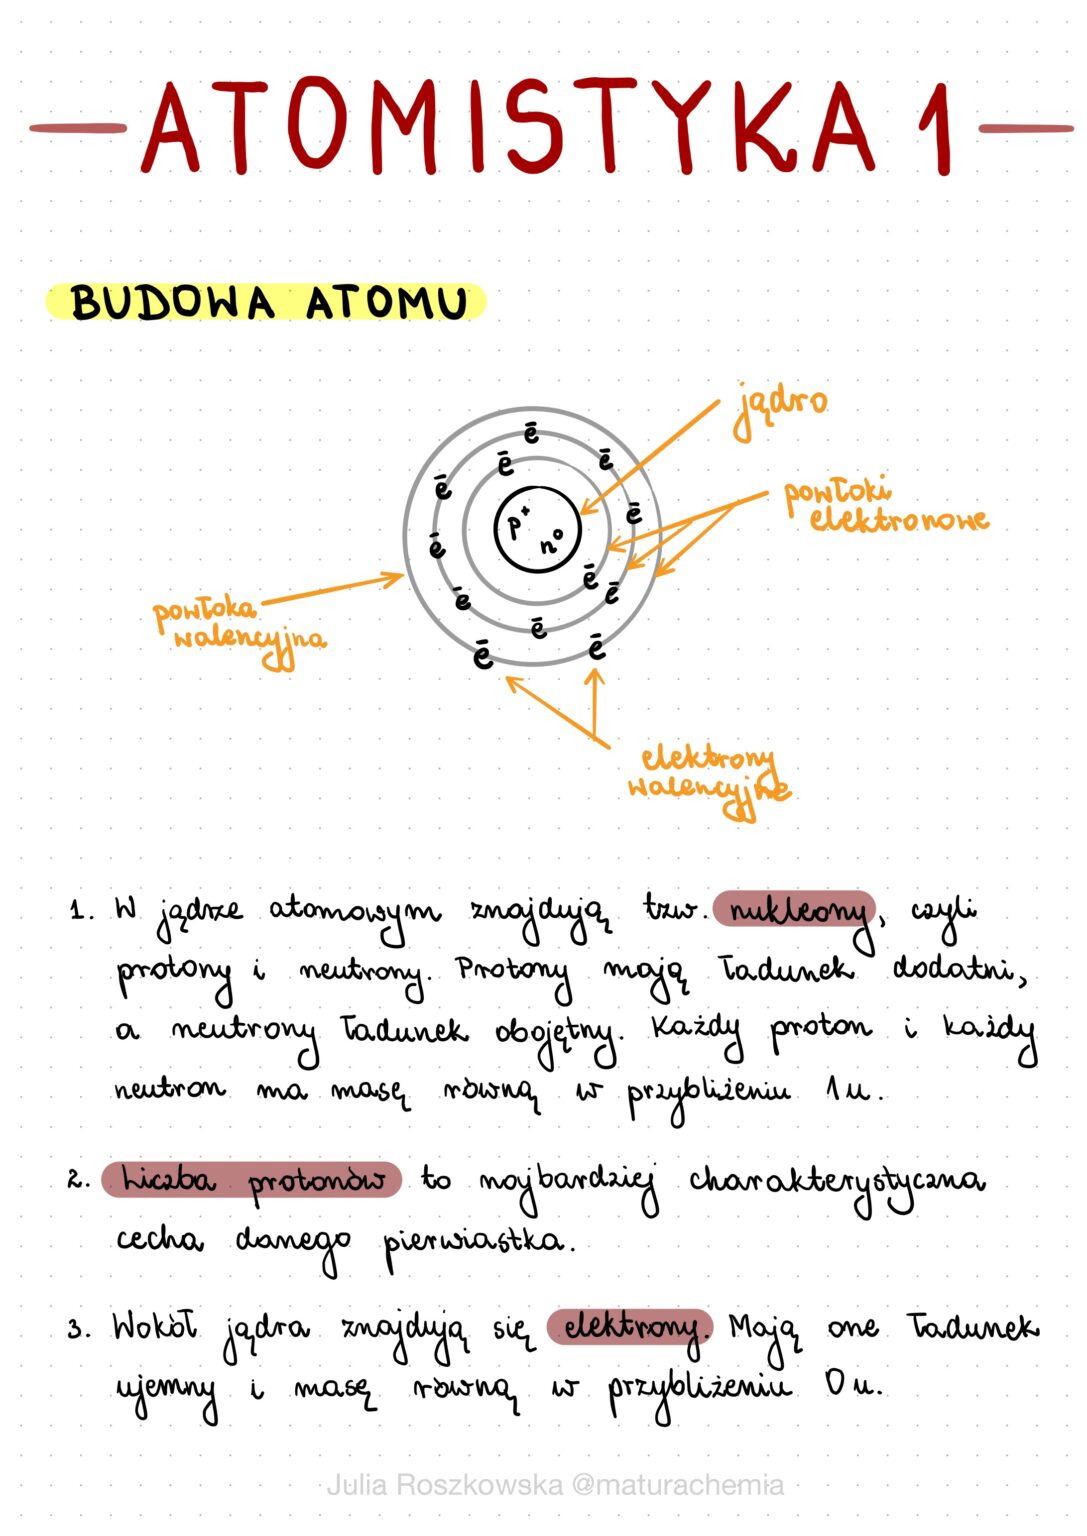 ATOMISTYKA 1
BUDOWA ATOMU
jądro
powłoki
elektronowe
p⁺
n⁰
e̅
e̅
e̅
e̅
e̅
e̅
e̅
e̅
e̅
e̅
e̅
e̅
powłoka
walencyjna
elektrony
walencyjne
1. W jądrze atomowym znajdują tzw. nukleony, czyli
protony i neutrony. Protony mają ładunek dodatni,
a neutrony ładunek obojętny. Każdy proton i każdy
neutron ma masę równą w przybliżeniu 1u.
2. Liczba protonów to najbardziej charakterystyczna
cecha danego pierwiastka.
3. Wokół jądra znajdują się elektrony. Mają one ładunek
ujemny i masę równą w przybliżeniu 0u.
Julia Roszkowska @maturachemia